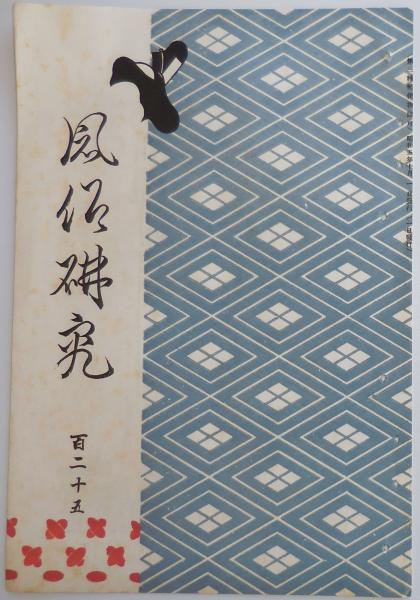 風俗研究
百二十五